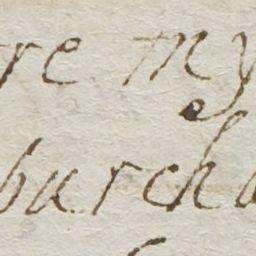 re my
burcha